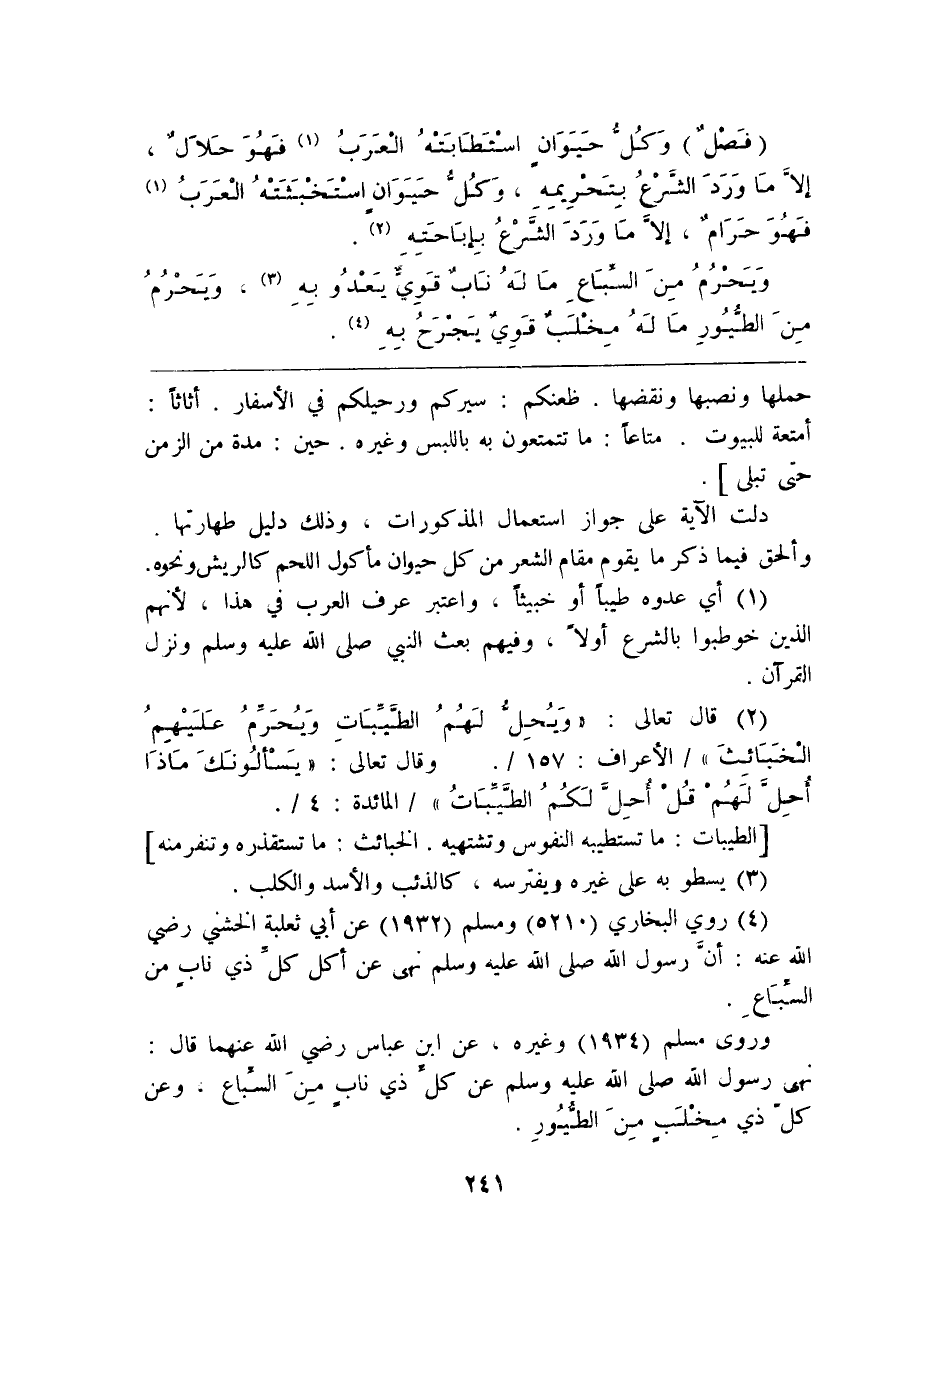 ( فَصْلٌ ) وَكُلُّ حَيَوَانٍ اسْتَطَابَتْهُ الْعَرَبُ (١) فَهُوَ حَلَالٌ ،
إلاَّ مَا وَرَدَ الشَّرْعُ بِتَحْرِيمِهِ ، وَكُلُّ حَيَوَانٍ اسْتَخْبَثَتْهُ الْعَرَبُ (١)
فَهُوَ حَرَامٌ ، إلاَّ مَا وَرَدَ الشَّرْعُ بِإبَاحَتِهِ (٢) .
وَيَحْرُمُ مِنَ السِّبَاعِ مَا لَهُ نَابٌ قَوِيٌّ يَعْدُو بِهِ (٣) ، وَيَحْرُمُ
مِنَ الطُّيُورِ مَا لَهُ مِخْلَبٌ قَوِيٌ يَجْرَحُ بِهِ (٤) .
حملها ونصبها ونقضها . ظعنكم : سيركم ورحيلكم في الأسفار . أثاثاً :
أمتعة للبيوت . متاعاً : ما تتمتعون به باللبس وغيره . حين : مدة من الزمن
حتى تبلى ] .
دلت الآية على جواز استعمال المذكورات ، وذلك دليل طهارتها .
وألحق فيما ذكر ما يقوم مقام الشعر من كل حيوان مأكول اللحم كالريش ونحوه.
(١) أي عدوه طيباً أو خبيثاً ، واعتبر عرف العرب في هذا ، لأنهم
الذين خوطبوا بالشرع أولاً ، وفيهم بعث النبي صلى الله عليه وسلم ونزل
القرآن .
(٢) قال تعالى : « وَيُحِلُّ لَهُمُ الطَّيِّبَاتِ وَيُحَرِّمُ عَلَيْهِمُ
الْخَبَائِثَ » / الأعراف : ١٥٧ /. وقال تعالى : « يَسْألُونَكَ مَاذَا
أُحِلَّ لَهُمْ قُلْ أُحِلَّ لَكُمُ الطَّيِّبَاتُ » / المائدة : ٤ /.
[الطيبات : ما تستطيبه النفوس وتشتهيه . الخبائث : ما تستقذره وتنفر منه]
(٣) يسطو به على غيره ويفترسه ، كالذئب والأسد والكلب .
(٤) روي البخاري (٥٢١٠) ومسلم (١٩٣٢) عن أبي ثعلبة الخشني رضي
الله عنه : أنَّ رسول الله صلى الله عليه وسلم نهى عن أكل كلِّ ذي نابٍ من
السِّبَاعِ .
وروى مسلم (١٩٣٤) وغيره ، عن ابن عباس رضي الله عنهما قال :
نهى رسول الله صلى الله عليه وسلم عن كلِّ ذي نابٍ مِنَ السِّباع ، وعن
كلّ ذي مِخْلَبٍ مِنَ الطُّيُورِ .
٢٤١